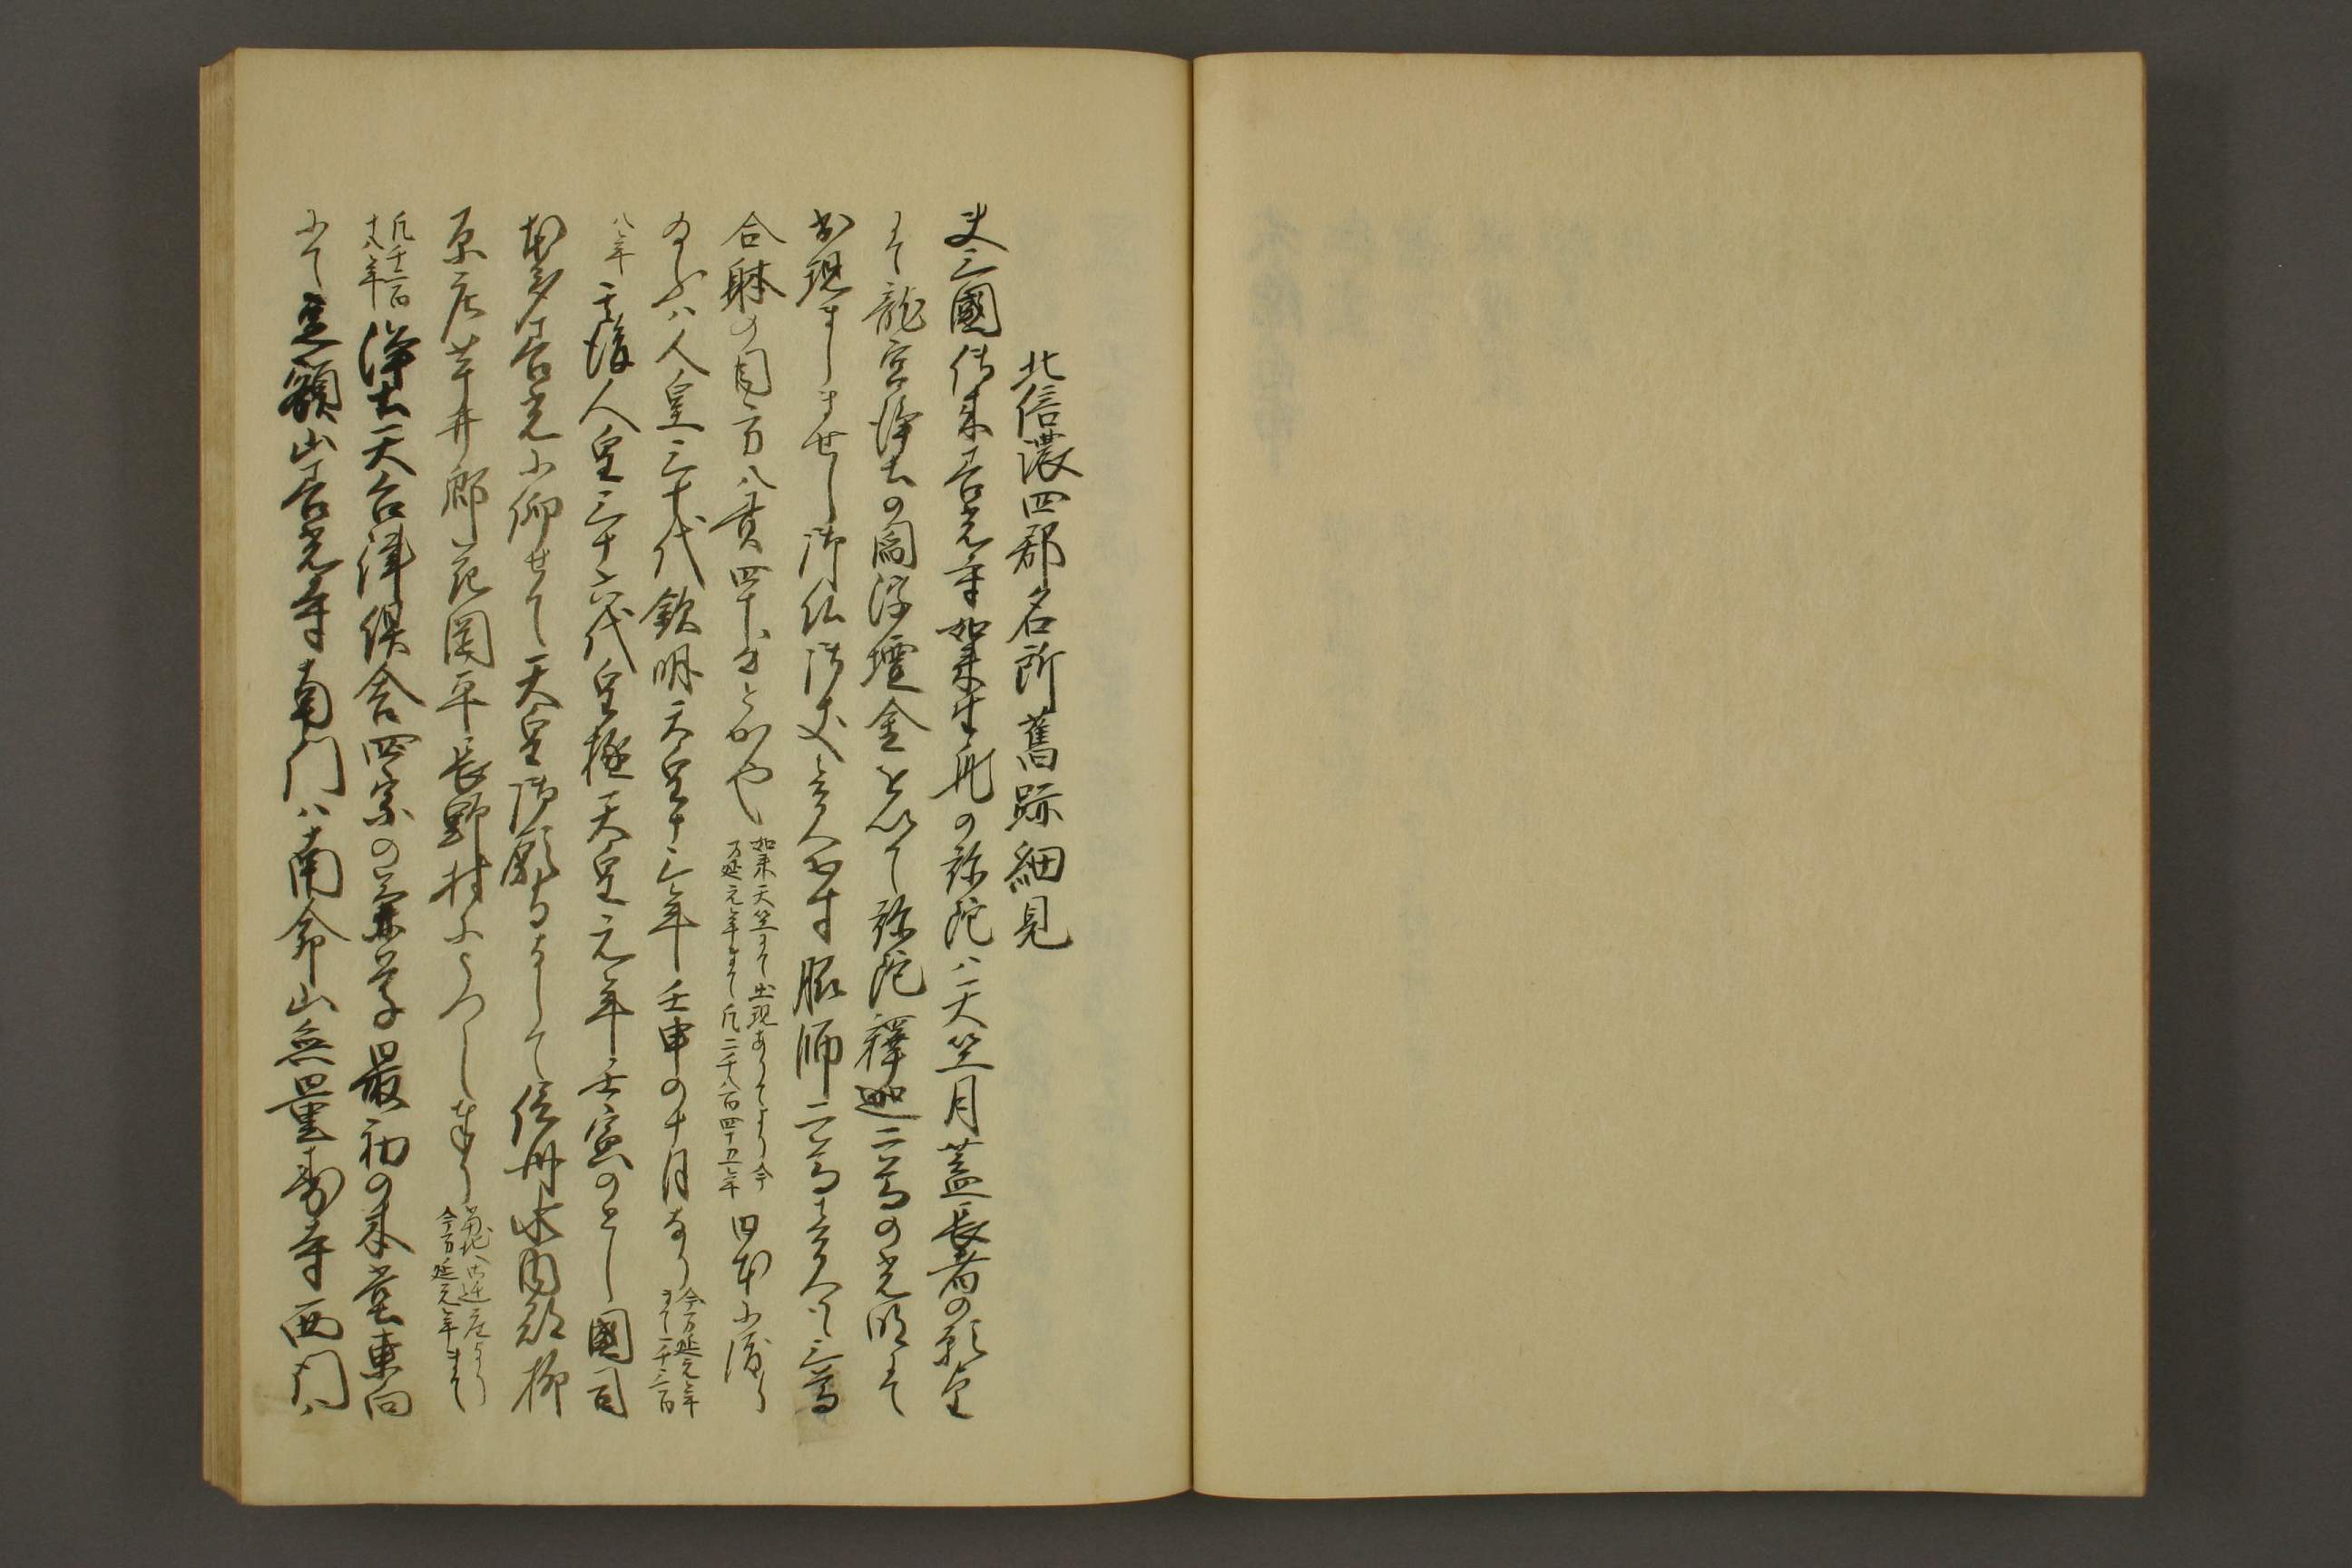 北信濃四郡名所舊跡細見
夫三國伝来善光寺如来生身の弥陀ハ天竺月蓋長者の願望
にて龍宮浄土の閻浮檀金を以て弥陀釋迦二尊の光明にて
出現ましませし御仏御丈壱尺五寸脇師二尊壱尺つゝ三尊
合躰の目方八貫四十匁とかや
如来天竺にて出現ありてより今
万延元年まて凡二千八百四十五年
日本に渡り
給ふハ人皇三十代欽明天皇十三年壬申の十月なり
今万延元年
まて一千三百
八年
其後人皇三十六代皇極天皇元年壬寅のとし國司
本多善光に仰せて天皇御願るよしにて信州水内郡柳
原庄芋井郷花岡平長野村にうつし奉り
今万延元年まて
凡千二百
十八年
浄土天台津倶舎四宗の兼学最初の本堂東向
にて定額山善光寺南門ハ南命山無量壽寺西門ハ